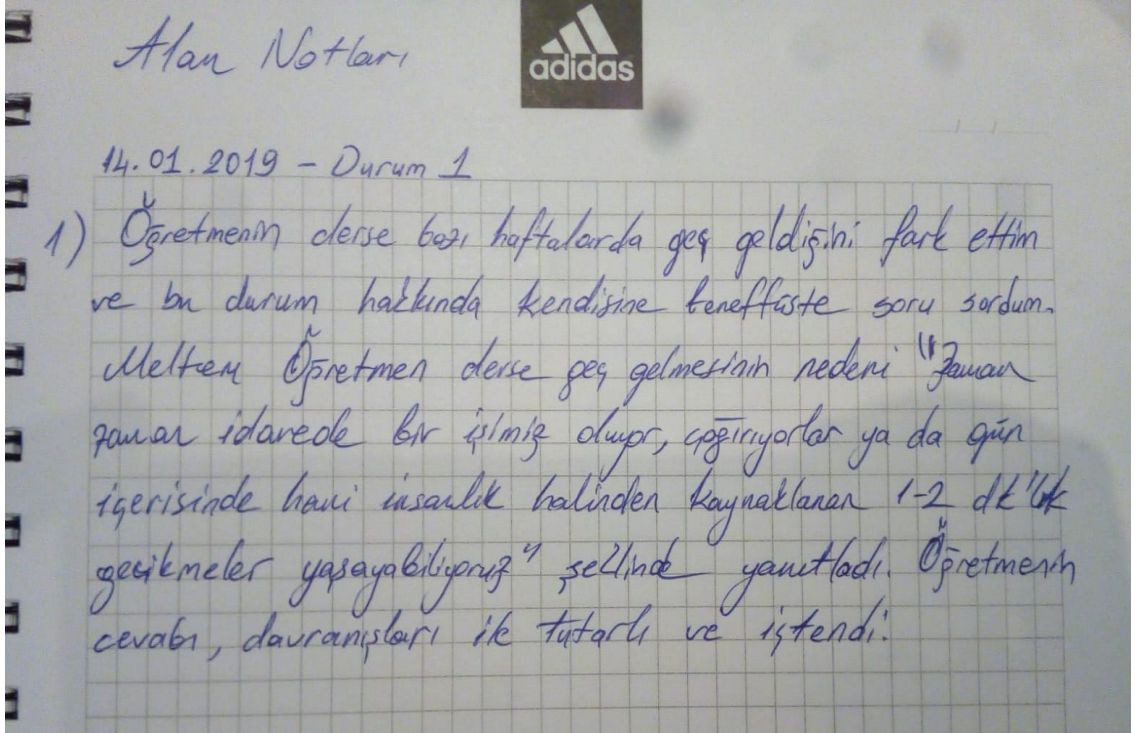 Alan Notları
adidas
14.01.2019 - Durum 1
1) Öğretmenin derse bazı haftalarda geç geldiğini fark ettim
ve bu durum hakkında kendisine teneffüste soru sordum.
Meltem Öğretmen derse geç gelmesinin nedeni "Zaman
zaman idarede bir işimiz oluyor, çağırıyorlar ya da gün
içerisinde hani insanlık halinden kaynaklanan 1-2 dk'lık
gecikmeler yaşayabiliyoruz" şeklinde yanıtladı. Öğretmenin
cevabı, davranışları ile tutarlı ve içtendi.